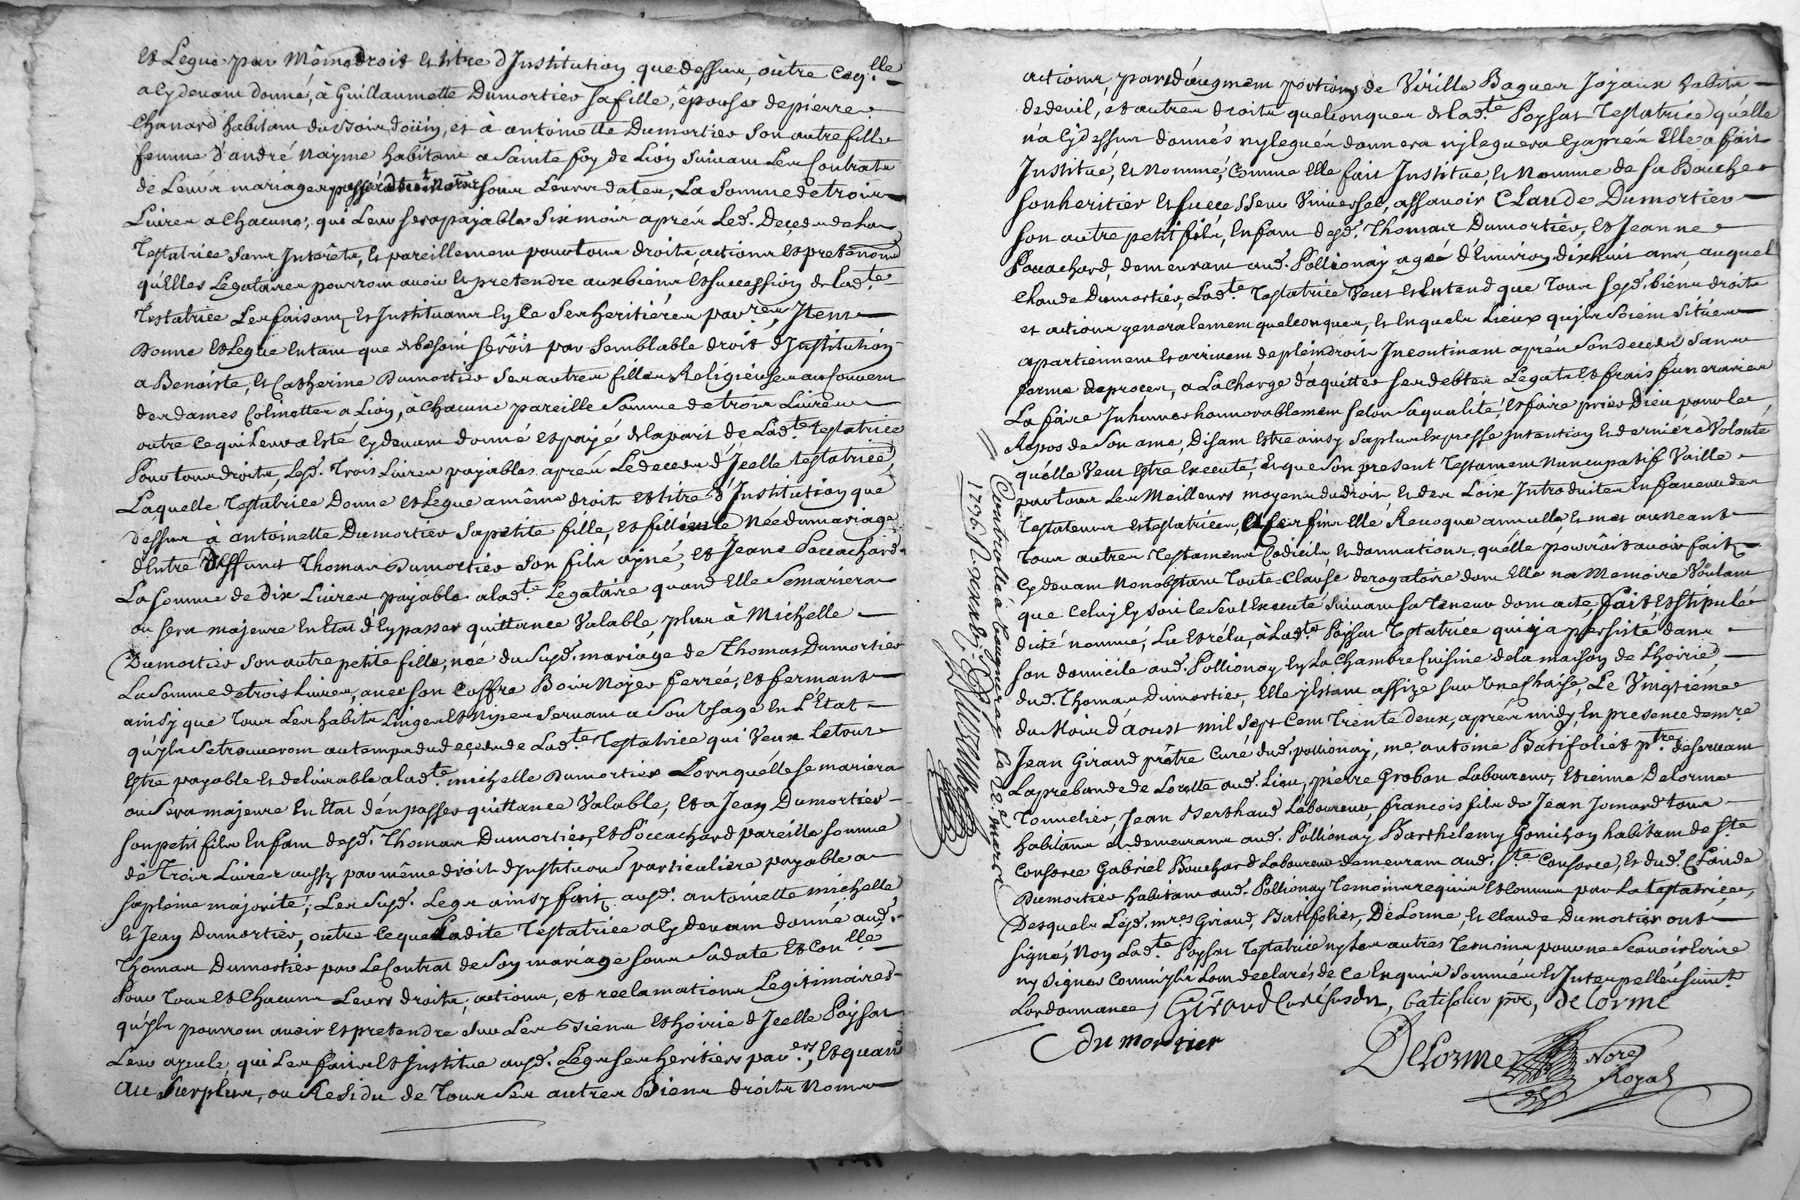 et Legue par même droit et titre d'Institution que dessus, outre ce qu'elle
a cy devant donné, à Guillaumette Dumortier sa fille, épouse de pierre
Chanard habitant du Bois d'oüin, et à antoinette Dumortier son autre fille
femme d'andré Nayme habitant a Sainte foy de Lion suivant Les Contrats
de Leurs mariages sous Leurs dates, La Somme de trois
Livres a chacune, qui Leur sera payable Six mois après Led. Deçedz de La
Testatrice sans Interêts, et pareillement pour tous droits, actions et pretentions
qu'elles Legataires pourroin avoir et pretendre aux biens et succession de lad.te
Testatrice Les faisant et Instituant en ce ses heritières par.res, Item
Donne et Legue en tant que de besoin seroit par semblable droit d'Institution
a Benoiste, et Catherine Dumortier ses autres filles Religieuses au Couvent
des dames Colinettes a Lion, à chacune pareille Somme de trois Livres
outre ce qui Leur a esté cy devant donné et payé de la part de Lad.te testatrice
Pour tous droits, Lesd. trois Livres payables après Le decedz d'Icelle testatrice,
Laquelle Testatrice Donne et Legue a même droit et titre d'Institution que
dessus à antoinette Dumortier sa petite fille, et fille née du mariage
d'Entre deffunct Thomas Dumortier son fils ayné, et Jeane Poccachard
La somme de Dix Livres payable a lad.te Legataire quand Elle se mariera
ou sera majeure en Etat d'en passer quittance valable, plus à Michelle
Dumortier son autre petite fille, née du susd. mariage de Thomas Dumortier
La Somme de trois Livres, avec son Coffre Bois Noyer ferré, et fermant
ainsy que tous Les habits Linges et Nipes servant a son Usage en L'Etat
qu'ils se trouveront au temps du deçedz de Lad.te Testatrice qui Veux Le tout
Estre payable et delivrable a lad.te michelle Dumortier Lorsqu'elle se mariera
ou Sera majeure en Etat d'en passer quittance Valable, et a Jean Dumortier
son petit fils Enfant desd. Thomas Dumortier, et Poccachard pareille somme
de Trois Livres aussy par même droit d'Institution particulière payable a
sa pleine majorité; Les susd. Legs ainsy fait ausd. antoinette michelle
et Jean Dumortier, outre ce que Ladite Testatrice a Cy devant donné aud.
Thomas Dumortier par Le Contrat de Son mariage sous sa date et Con.lle
Pour tous et Chacuns Leurs droits, actions, et reclamations Legitimaires
qu'ils pourront avoir et pretendre sur Les Biens et hoirie d'Icelle Poysat
Leur ayeule, qui Les fait et Institue ausd. Legs ses heritiers par.ers, Et quant
au Surplus, ou Residu de tous Ses autres Biens droits Noms
actions, part d'augment portions de Virille Bagues Joyaux habits
de deuil, et autres droits quelconques de lad.te Poysat Testatrice qu'elle
n'a cy dessus donnés ny legués donnera ny leguera cy après Elle a fait
Institué, et Nommé, Comme Elle fait Institue, et Nomme de Sa Bouche
son heritier et successeur Universel, assavoir Claude Dumortier
son autre petit fils, Enfant desd. Thomas Dumortier, et Jeanne
Poccachard, demeurant aud. Pollionay agé d'Environ dix huit ans, auquel
Claude Dumortier, Lad.te Testatrice Veut et Entend que tous sesd. biens droits
et actions generalement quelconques, et En quels Lieux qu'ils soient Situés
apartiennent et arrivent de plein droit Incontinant après Son decedz Sans
forme de procez, a La charge d'aquitter ses debtes Legats et frais funeraires
La faire Inhumer honnorablement selon Sa qualité, et faire prier Dieu pour Le
Repos de Son ame, Disant Estre ainsy Sa plus Expresse Intention et derniere Volonté
quelle Veut Estre Executé, et que Son present Testament Nuncupatif Vaille
par tous Les Meilleurs moyens du droit et des Loix Introduites En faveur des
Testateurs et testatrices, Elle Revoque annulle et met au neant
tous autres Testaments Codicils et donnations, quelle pourroit avoir fait
Cy devant Nonobstant toute Clause derogatoire dont Elle na Memoire Voulant
que Celuy Cy soit le Seul Executé Suivant Sa teneur dont acte, fait et Stipulé
dicté nommé, Lu et rélu, à Lad.te Poysat testatrice qui y a persisté dans
son domicile aud. Pollionay En La Chambre Cuisine de la maison de L'hoirie,
dud. Thomas Dumortier, Elle y Estant assize sur Une Chaise, Le Vingtieme
du Mois d'aoust mil Sept Cent Trente deux, après midy, En presence de m.re
Jean Giraud prêtre Curé dud. pollionay, m.e antoine Batifolier p.tre deservant
La prebande de Lorette aud. Lieu, pierre Groban Laboureur, Etienne Delorme
Tonnelier, Jean Berthaud Laboureur, francois fils de Jean Jomard tous
habitans et demeurans aud. Pollionay Barthelemy Gonichon habitant de S.te
Consorce Gabriel Bouchard Laboureur demeurant aud. S.te Consorce, et dud. Claude
Dumortier habitant aud. Pollionay temoins requis et Connus par La testatrice,
Desquels Lesd. m.res Giraud, Batifolier, De Lorme, et Claude Dumortier ont
signé, Non Lad.te Poysat Testatrice ny Les autres temoins pour ne Scavoir Ecrire
ny Signer Comme ils L'ont declarés de Ce Enquis Sommés et Interpellés suiv.t
Lordonnance / Giraud Curé susdt, batifolier ptre, delorme
du mortier
Delorme Nore
Royal
// Controllé à Le 2.e mars
1736 R